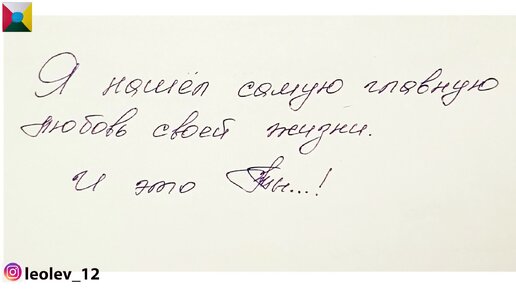 Я нашёл самую главную
любовь своей жизни.
И это Ты...!
leolev_12